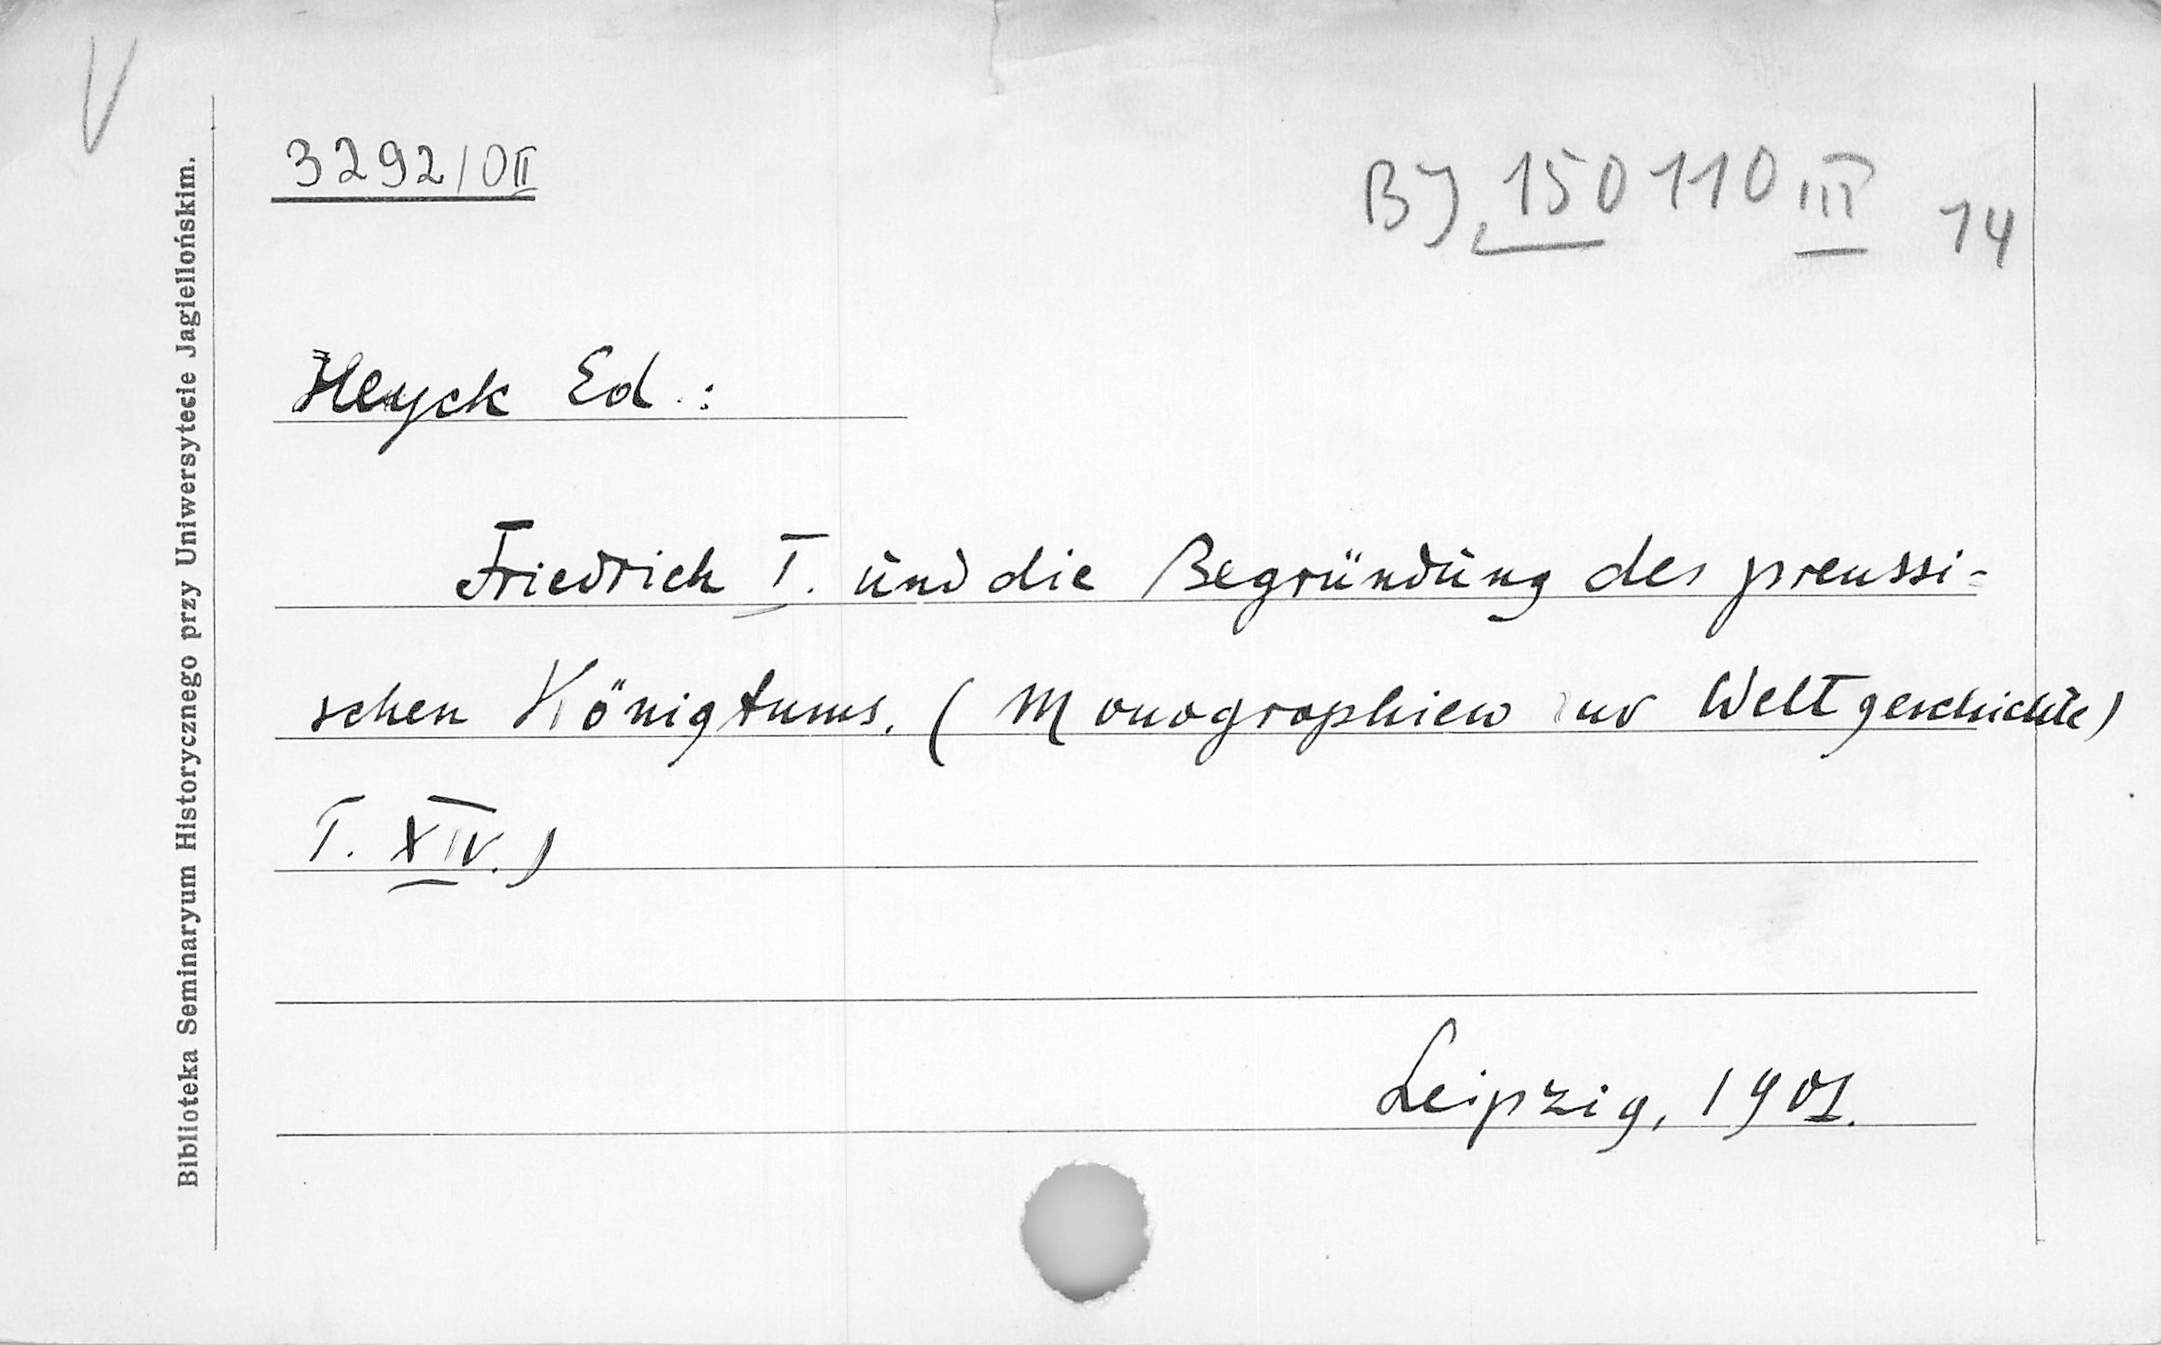 V
3292/OII
BJ, 150110 III 14
Heyck Ed.:
Friedrich I. und die Begründung des preussi-
schen Königtums. (Monographien zur Weltgeschichte)
T. XIV.)
Leipzig, 1901.
Biblioteka Seminaryum Historycznego przy Uniwersytecie Jagiellońskim.